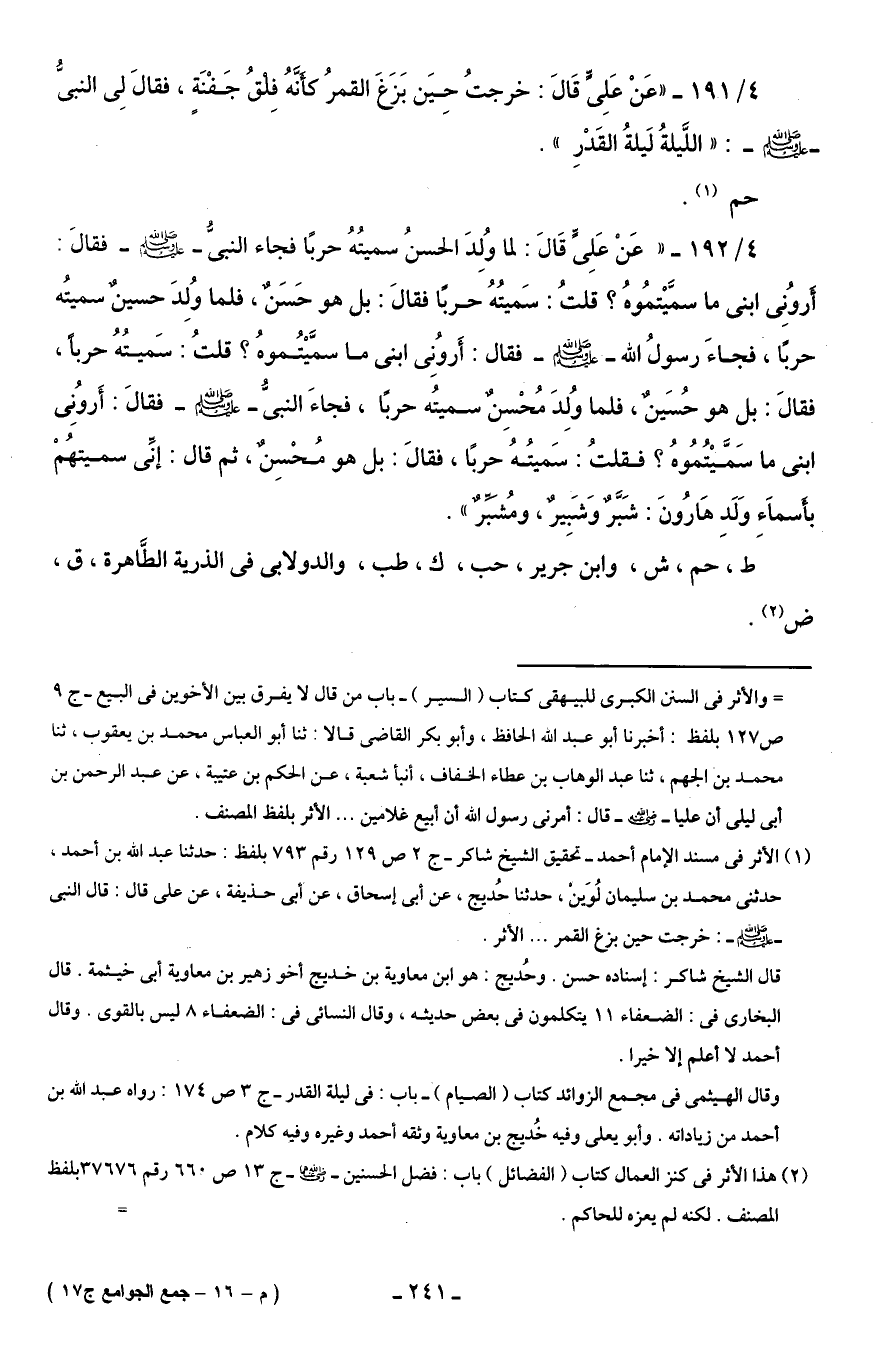 ٤/ ١٩١ ـ «عَنْ عَلىٍّ قَالَ : خرجتُ حِـيَن بَزَغَ القمرُ كأنَّهُ فِلْقُ جَـفْنَةٍ ، فقالَ لى النبىُّ
ـ ﷺ ـ : « اللَّيلةُ لَيلةُ القَدْرِ » .
حم (١) .
٤/ ١٩٢ ـ « عَنْ عَلىٍّ قَالَ : لما وُلِدَ الحسنُ سميتُهُ حربًا فجاء النبىُّ ـ ﷺ ـ فقالَ :
أَرونِى ابنى ما سميَّتْموهُ ؟ قلتُ : سَميتُهُ حـربًا فقالَ : بل هو حَسَنٌ ، فلما وُلِدَ حسينٌ سميتُه
حربًا ، فجـاءَ رسولُ الله ـ ﷺ ـ فقال : أَرونِى ابنى مـا سميَّتْـموهُ ؟ قلتُ : سَميتُهُ حرباً ،
فقالَ : بل هو حُسَينٌ ، فلما وُلِدَ مُحْسِنٌ سـميتُه حربًا ، فجاءَ النبىُّ ـ ﷺ ـ فقالَ : أَرونِى
ابنى ما سَمَّيْتُمُوهُ ؟ فـقلتُ : سَميتُـهُ حربًا ، فقالَ : بل هو مُـحْسِنٌ ، ثم قال : إنِّى سـميتهُمْ
بأَسماَءِ وَلَدِ هَارُونَ : شَبَّرٌ وَشَبِيرٌ ، ومُشَبِّرٌ » .
ط ، حم ، ش ، وابن جرير ، حب ، ك ، طب ، والدولابى فى الذرية الطَّاهرة ، ق ،
ض(٢) .
= والأثر فى السنن الكبـرى للبيـهقى كـتاب ( السيـر ) ـ باب من قال لا يفـرق بين الأخوين فى البيع ـ ج ٩
ص١٢٧ بلفظ : أخبرنا أبو عبـد الله الحافظ ، وأبو بكر القاضى قـالا : ثنا أبو العباس محمـد بن يعقوب ، ثنا
محمـد بن الجهم ، ثنا عبد الوهاب بن عطاء الخـفاف ، أنبأ شعبة ، عـن الحكم بن عتيبة ، عن عـبد الرحمن بن
أبى ليلى أن عليا ـ رضي الله عنه ـ قال : أمرنى رسول الله أن أبيع غلامين ... الأثر بلفظ المصنف .
(١) الأثر فى مسند الإمام أحمد ـ تحقيق الشيخ شاكر ـ ج ٢ ص ١٢٩ رقم ٧٩٣ بلفظ : حدثنا عبد الله بن أحمد ،
حدثنى محمـد بن سليمان لُوَيَنْ ، حدثنا حُديج ، عن أبى إسحاق ، عن أبى حـذيفة ، عن على قال : قال النبى
ـ ﷺ ـ : خرجت حين بزغ القمر ... الأثر .
قال الشيخ شاكر : إسناده حسن . وحُديج : هو ابن معاوية بن خـديج أخو زهير بن معاوية أبى خيـثمة . قال
البخارى فى : الضـعفاء ١١ يتكلمون فى بعض حديثـه ، وقال النسائى فى : الضعفـاء ٨ ليس بالقوى . وقال
أحمد لا أعلم إلا خيرا .
وقال الهـيثمى فى مـجمع الزوائد كتاب ( الصـيام ) ـ باب : فى ليلة القدر ـ ج ٣ ص ١٧٤ : رواه عـبد الله بن
أحمد من زياداته . وأبو يعلى وفيه خُديج بن معاوية وثقه أحمد وغيره وفيه كلام .
(٢) هذا الأثر فى كنز العمال كتاب ( الفضائل ) باب : فضل الحسنين ـ رضي الله عنهما ـ ج ١٣ ص ٦٦٠ رقم ٣٧٦٧٦بلفظ
المصنف . لكنه لم يعزه للحاكم . =
ـ ٢٤١ ـ ( م – ١٦ – جمع الجوامع ج١٧ )